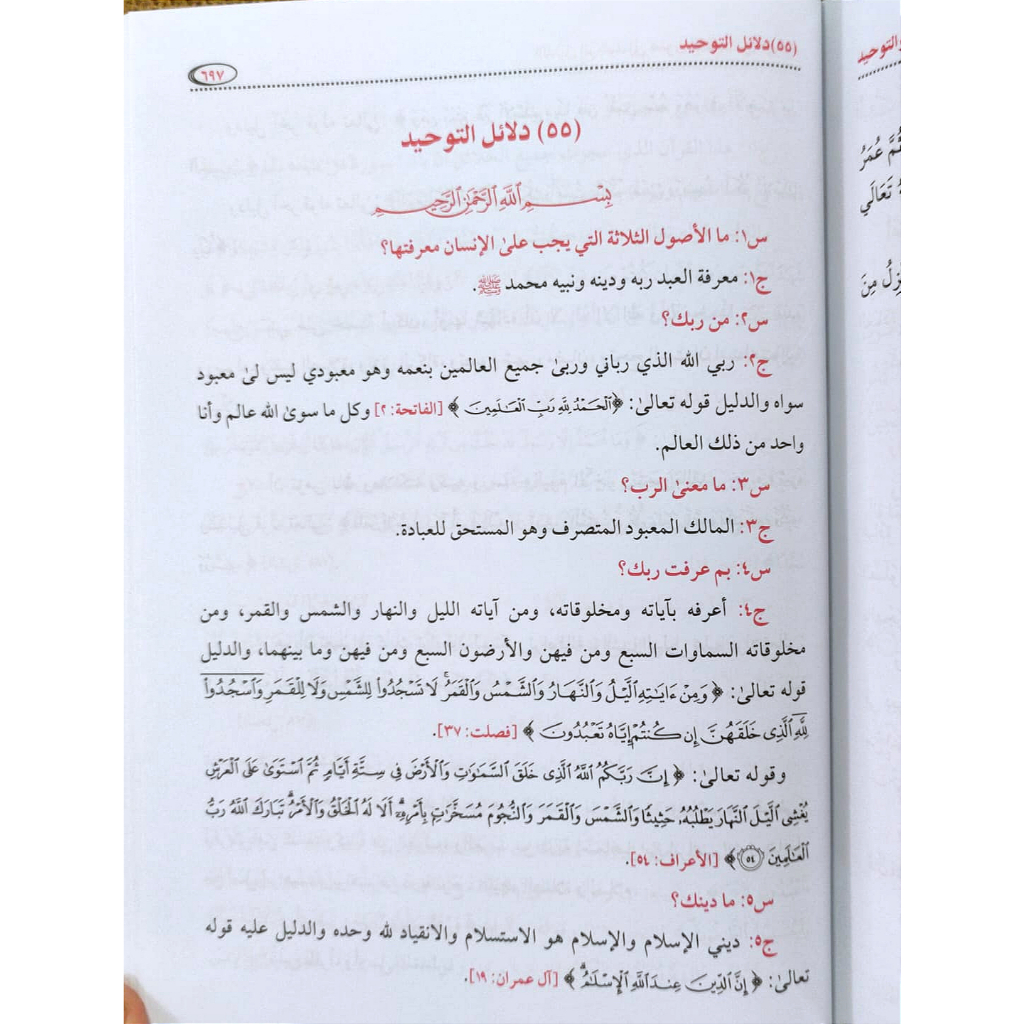 (٥٥) دلائل التوحيد
٦٩٧
(٥٥) دلائل التوحيد
بِسْمِ اللَّهِ الرَّحْمَنِ الرَّحِيمِ
س١: ما الأصول الثلاثة التي يجب علىٰ الإنسان معرفتها؟
ج١: معرفة العبد ربه ودينه ونبيه محمد ﷺ.
س٢: من ربك؟
ج٢: ربي الله الذي رباني وربىٰ جميع العالمين بنعمه وهو معبودي ليس لىٰ معبود
سواه والدليل قوله تعالىٰ: ﴿الْحَمْدُ لِلَّهِ رَبِّ الْعَالَمِينَ﴾ [الفاتحة: ٢] وكل ما سوىٰ الله عالم وأنا
واحد من ذلك العالم.
س٣: ما معنىٰ الرب؟
ج٣: المالك المعبود المتصرف وهو المستحق للعبادة.
س٤: بم عرفت ربك؟
ج٤: أعرفه بآياته ومخلوقاته، ومن آياته الليل والنهار والشمس والقمر، ومن
مخلوقاته السماوات السبع ومن فيهن والأرضون السبع ومن فيهن وما بينهما، والدليل
قوله تعالىٰ: ﴿وَمِنْ ءَايَٰتِهِ ٱلَّيْلُ وَٱلنَّهَارُ وَٱلشَّمْسُ وَٱلْقَمَرُ ۚ لَا تَسْجُدُوا۟ لِلشَّمْسِ وَلَا لِلْقَمَرِ وَٱسْجُدُوا۟
لِلَّهِ ٱلَّذِى خَلَقَهُنَّ إِن كُنتُمْ إِيَّاهُ تَعْبُدُونَ﴾ [فصلت: ٣٧].
وقوله تعالىٰ: ﴿إِنَّ رَبَّكُمُ ٱللَّهُ ٱلَّذِى خَلَقَ ٱلسَّمَٰوَٰتِ وَٱلْأَرْضَ فِى سِتَّةِ أَيَّامٍ ثُمَّ ٱسْتَوَىٰ عَلَى ٱلْعَرْشِ
يُغْشِى ٱلَّيْلَ ٱلنَّهَارَ يَطْلُبُهُۥ حَثِيثًا وَٱلشَّمْسَ وَٱلْقَمَرَ وَٱلنُّجُومَ مُسَخَّرَٰتٍۭ بِأَمْرِهِۦٓ ۗ أَلَا لَهُ ٱلْخَلْقُ وَٱلْأَمْرُ ۗ تَبَارَكَ ٱللَّهُ رَبُّ
ٱلْعَٰلَمِينَ ٥٤﴾ [الأعراف: ٥٤].
س٥: ما دينك؟
ج٥: ديني الإسلام والإسلام هو الاستسلام والانقياد لله وحده والدليل عليه قوله
تعالىٰ: ﴿إِنَّ ٱلدِّينَ عِندَ ٱللَّهِ ٱلْإِسْلَٰمُ ۗ﴾ [آل عمران: ١٩].
والتوحيد
ثُمَّ عُمَرُ
تَعَالَي
مِنَ